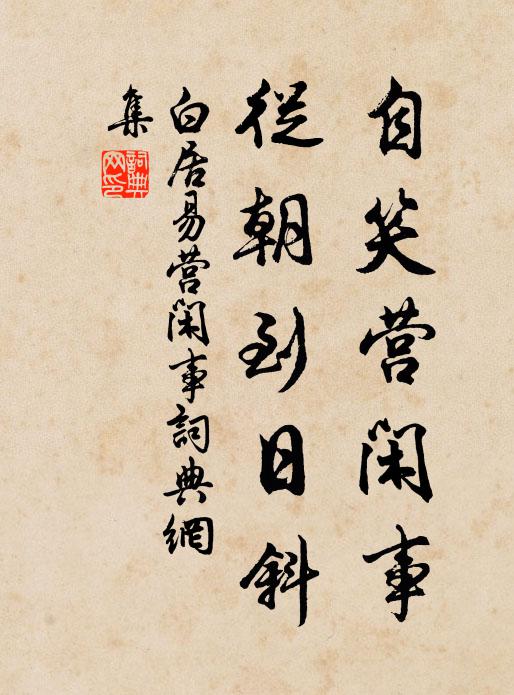 自笑营闲事
從朝到日斜
白居易营闲事詞典網
集
詞典
网印